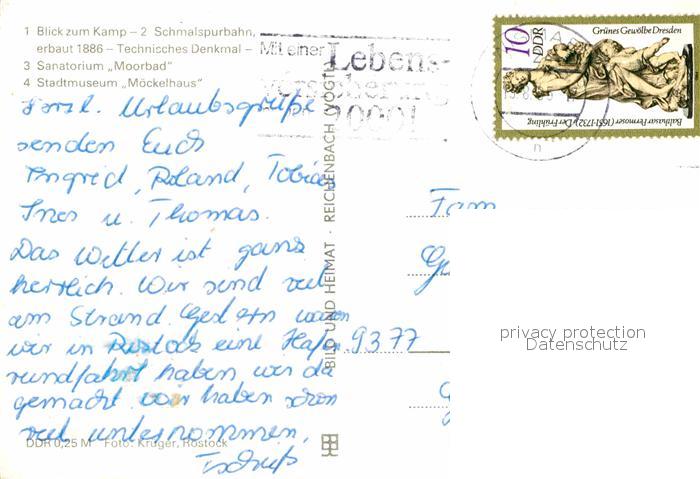 1 Blick zum Kamp – 2 Schmalspurbahn,
erbaut 1886 – Technisches Denkmal –
3 Sanatorium „Moorbad"
4 Stadtmuseum „Möckelhaus"
Mit einer Lebens-
versicherung
Herzl. Urlaubsgrüße
senden Euch
Ingrid, Roland, Tobias
Ines u. Thomas.
Das Wetter ist ganz
herrlich. Wir sind viel
am Strand. Gestern waren
wir in Rostock eine Hafen
rundfahrt haben wir da
gemacht. Wir haben schon
viel unternommen,
Tschüß
DDR 0,25 M Foto: Krüger, Rostock
BILD UND HEIMAT · REICHENBACH (VOGTL
10 DDR
Grünes Gewölbe Dresden
Balthasar Permoser (1651-1732) · Der Frühling
Fam
9377
privacy protection
Datenschutz